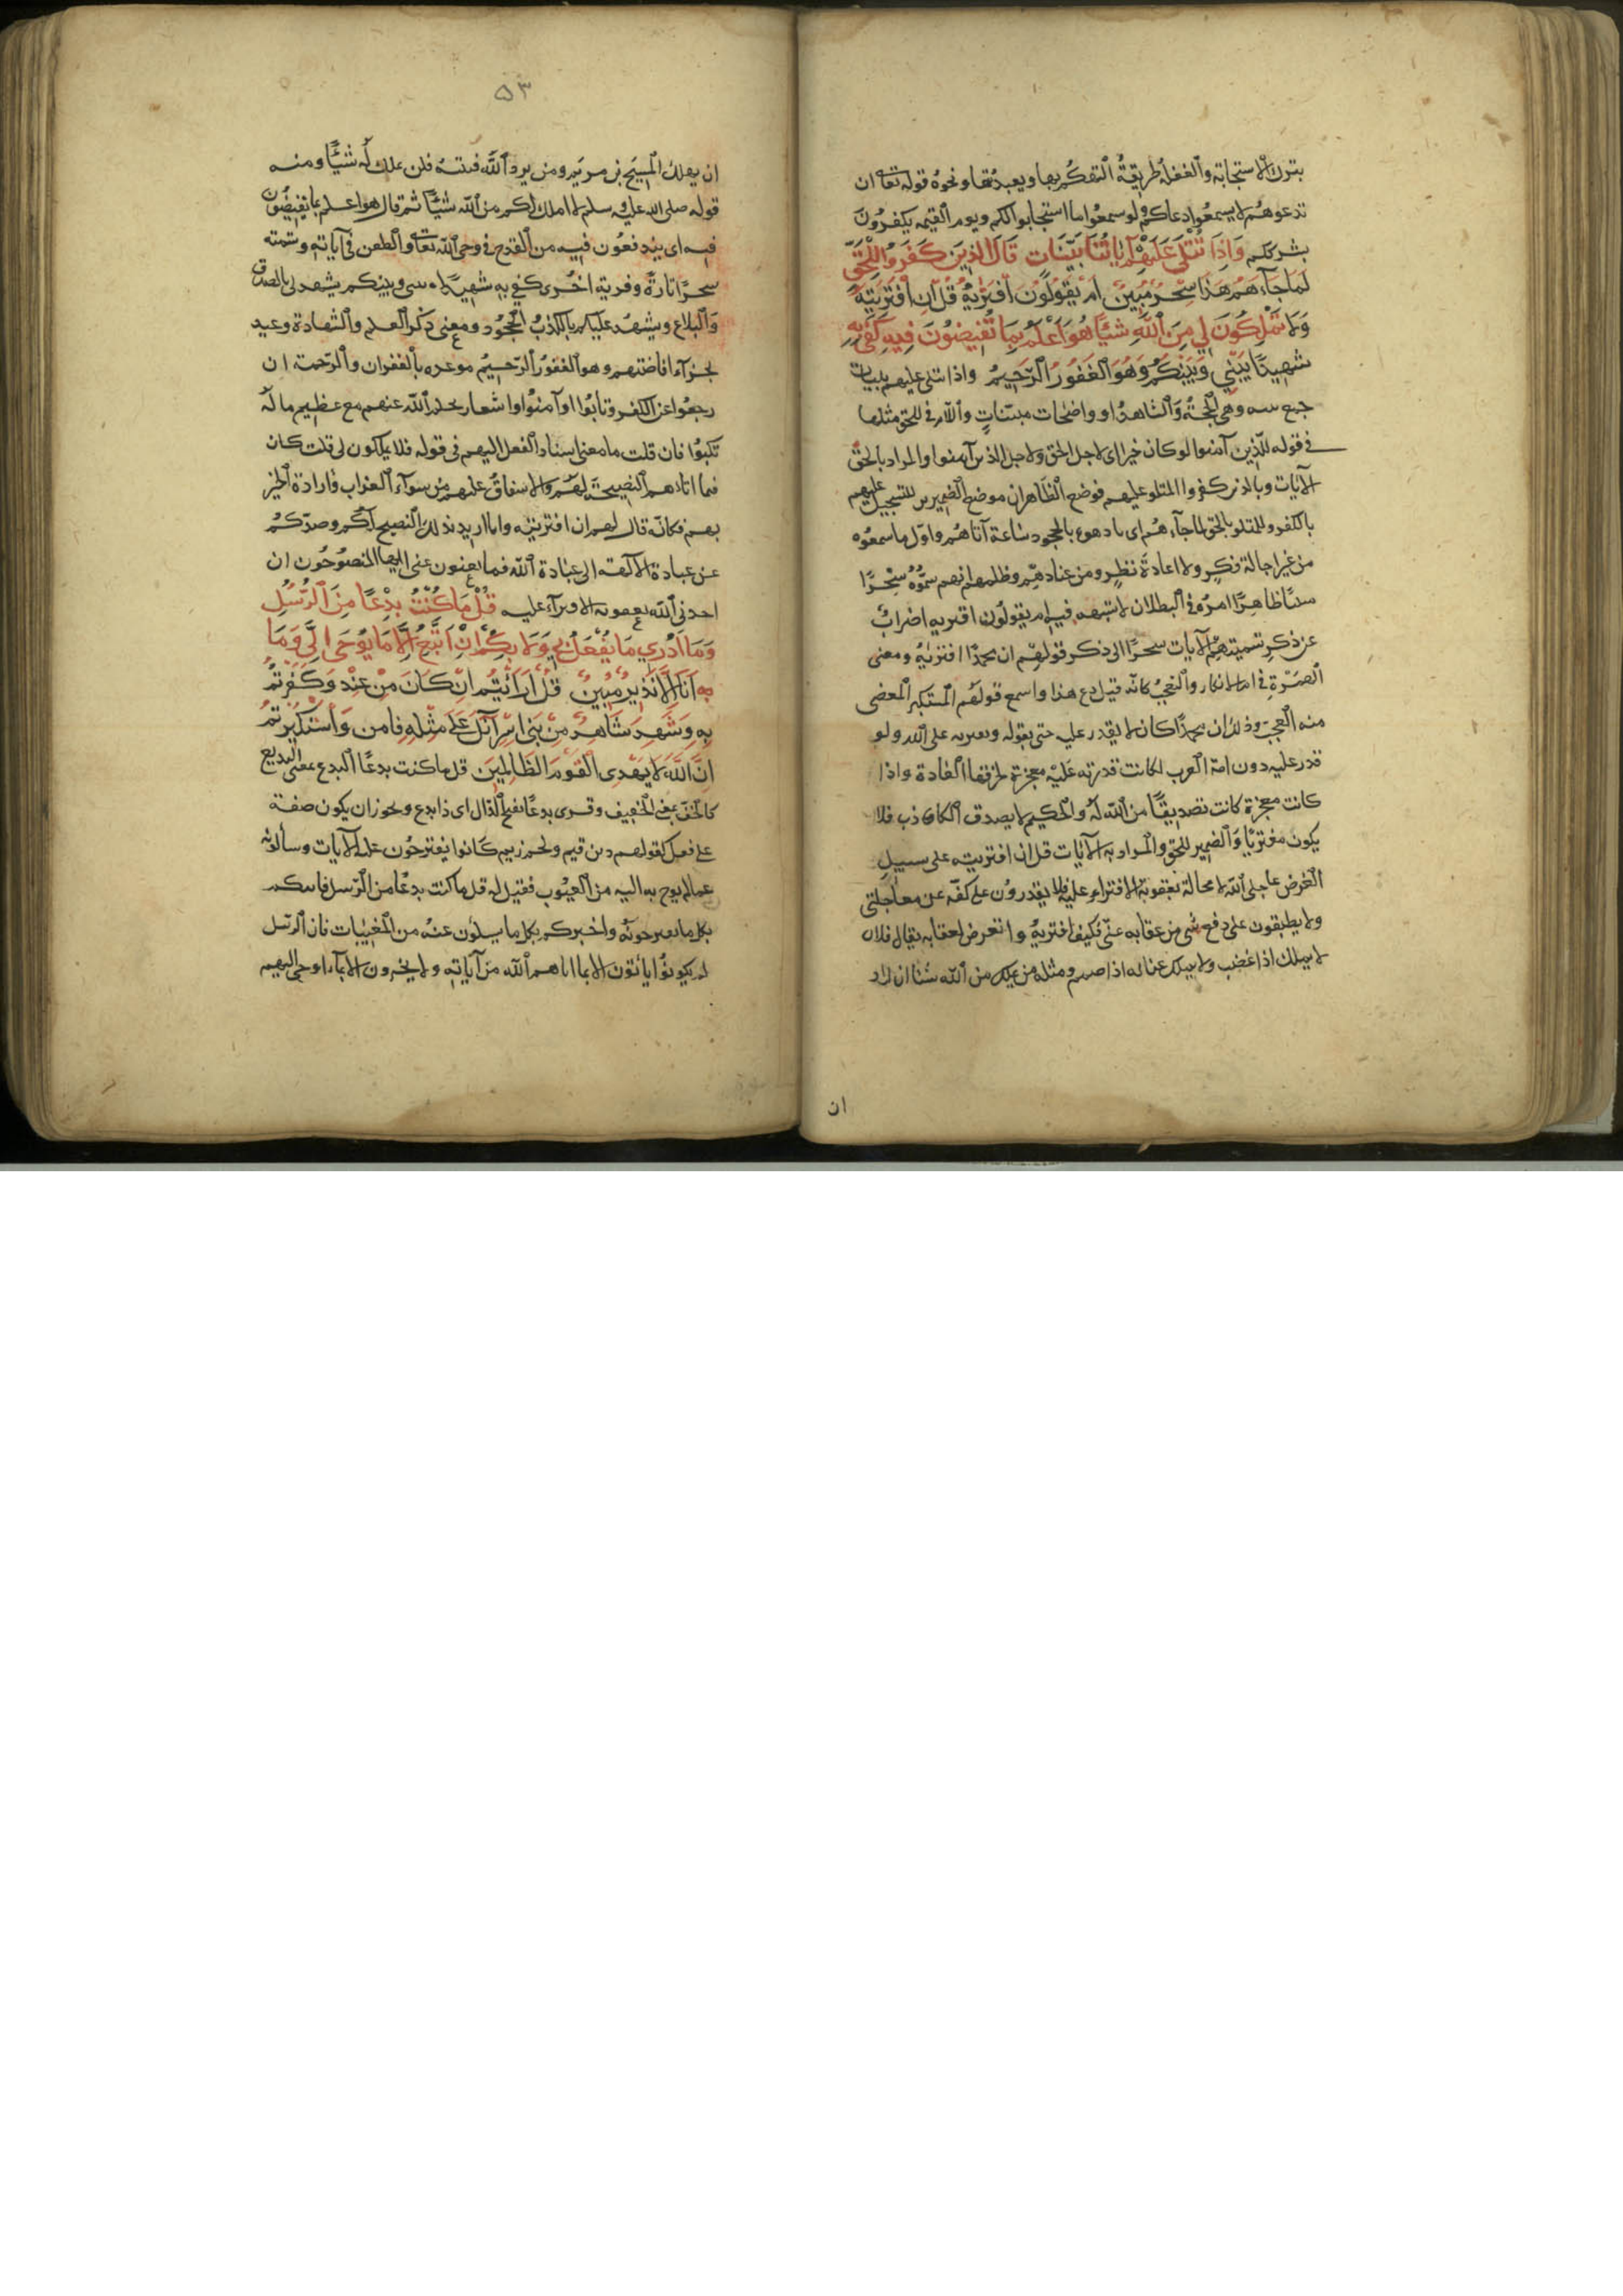 بترك الاستجابة والغفلة طريقة التهكم بها وبعبدتها ونحوه قوله تعالى ان
تدعوهم لا يسمعوا دعاكم ولو سمعوا ما استجابوا لكم ويوم القيمة يكفرون
بشرككم وَاِذَا تُتْلَى عَلَيْهِمْ آيَاتُنَا بَيِّنَات قَالَ الذِينَ كَفَرُوا لِلْحَقِّ
لَمَّا جَآءَهُم هَذَا سِحْرٌ مُبِينٌ اَمْ يَقُولُونَ اَفْتَرَيْهُ قُلْ اِنِ اَفْتَرَيْتُهُ
وَلَا تَمْلِكُونَ لِي مِنَ اَللَّهِ شَيْئًا هُوَ اَعْلَمُ بِمَا تُفِيضُونَ فِيهِ كَفَى بِهِ
شَهِيدًا بَيْنِي وَبَيْنَكُمْ وَهُوَ اَلْغَفُورُ اَلرَّحِيمُ واذا تتلى عليهم بينات
جمع بينه وهي الحجة والشاهد او واضحات مبينات واللام في للحق مثلها
في قوله للذين آمنوا لو كان خيرا اى لاجل الحق ولاجل الذين آمنوا والمراد بالحق
الآيات وبالذين كفروا المتلو عليهم فوضع الظاهران موضع الضميرين للتسجيل عليهم
بالكفر وللمتلو بالحق لما جآءهم اى بادهوه بالجحود ساعة آتاهم واول ما سمعوه
من غير اجالة فكر ولا اعادة نظر ومن عنادهم وظلمهم انهم سموه سحرًا
مبينًا ظاهرًا امره في البطلان لا شبهة فيه ام يقولون افتريه اضراب
عن ذكر تسميتهم الآيات سحرًا الى ذكر قولهم ان محمدًا افتريه ومعنى
الهمزة في ام الانكار والتعجيب كانه قيل دع هذا واسمع قولهم المستنكر المقضى
منه العجب وذلك ان محمدًا كان لا يقدر عليه حتى يقوله ويفتريه على الله ولو
قدر عليه دون امة العرب لكانت قدرته عليه معجزة لخرقها العادة واذا
كانت معجزة كانت تصديقًا من الله له والحكيم لا يصدق الكاذب فلا
يكون مفتريًا والضمير للحق والمراد به الآيات قل ان افتريته على سبيل
الفرض عاجلنى الله لا محالة بعقوبة الافتراء عليه فلا يقدرون على كفه عن معاجلتى
ولا يطيقون على دفع شى من عقابه عنى فكيف افتريه واتعرض لعقابه يقال فلان
لا يملك اذا غضب ولا يملك عنانه اذا صمم ومثله فمن يملك من الله شيئا ان اراد
ان
٥٣
ان يهلك المسيح بن مريم ومن يرد الله فتنته فلن تملك له شيئًا ومنه
قوله صلى الله عليه وسلم لا املك لكم من الله شيئًا ثم قال هو اعلم بما تفيضون
فيه اى يندفعون فيه من القدح في وحى الله تعالى والطعن في آياته وتسميته
سحرًا تارة وفرية اخرى كفى به شهيدًا بينى وبينكم يشهد لى بالصدق
والبلاغ ويشهد عليكم بالكذب والجحود ومعنى ذكر العلم والشهادة وعيد
بجزآء افاضتهم وهو الغفور الرحيم موعده بالغفران والرحمة ان
رجعوا عن الكفر وتابوا وآمنوا واشعار بحلم الله عنهم مع عظيم ما
تكبوا فان قلت ما معنى اسناد الفعل اليهم في قوله فلا يملكون لى قلت كان
فما اتاهم النصيحة لهم والاشفاق عليهم من سوآء العذاب وارادة الخير
بهم فكانه قال لهم ان افتريته وانا اريد بذلك النصيح لكم وصدكم
عن عبادة الآلهة الى عبادة الله فما تغنون عنى ايها المنصوحون ان
اخذنى الله بعقوبة الافترآء عليه قُلْ مَا كُنْتُ بِدْعًا مِنَ اَلرُّسُلِ
وَمَا اَدْرِي مَا يُفْعَلُ بِي وَلَا بِكُمْ اِنْ اَتَّبِعُ اِلَّا مَا يُوحَى اِلَيَّ وَمَا
اَنَا اِلَّا نَذِيرٌ مُبِينٌ قُلْ اَرَاَيْتُم اِنْ كَانَ مِنْ عِنْدِ وَكَفَرْتُمْ
بِهِ وَشَهِدَ شَاهِدٌ مِنْ بَنِى اِسْرَآئلَ عَلَى مِثْلِهِ فامن وَاَسْتَكْبَرْتُمْ
اِنَّ اَللَّهَ لَا يَهْدِى الْقَوْمَ الظَّالِمِينَ قل ما كنت بدعًا البدع بمعنى البديع
كالخف بمعنى الخفيف وقرى بدعًا بفتح الدال اى ذا بدع ويجوز ان يكون صفة
على فعل كقولهم دين قيم ولحم زيم كانوا يقترحون عليه الآيات وسألونه
عما لم يوح به اليه من الغيوب فقيل له قل ما كنت بدعًا من الرسل فاتيكم
بكل ما تقترحونه واخبركم بكل ما يسلون عنه من المغيبات فان الرسل
لم يكونوا يأتون الا بما اتاهم الله من آياته ولا يخبرون الا بما اوحى اليهم